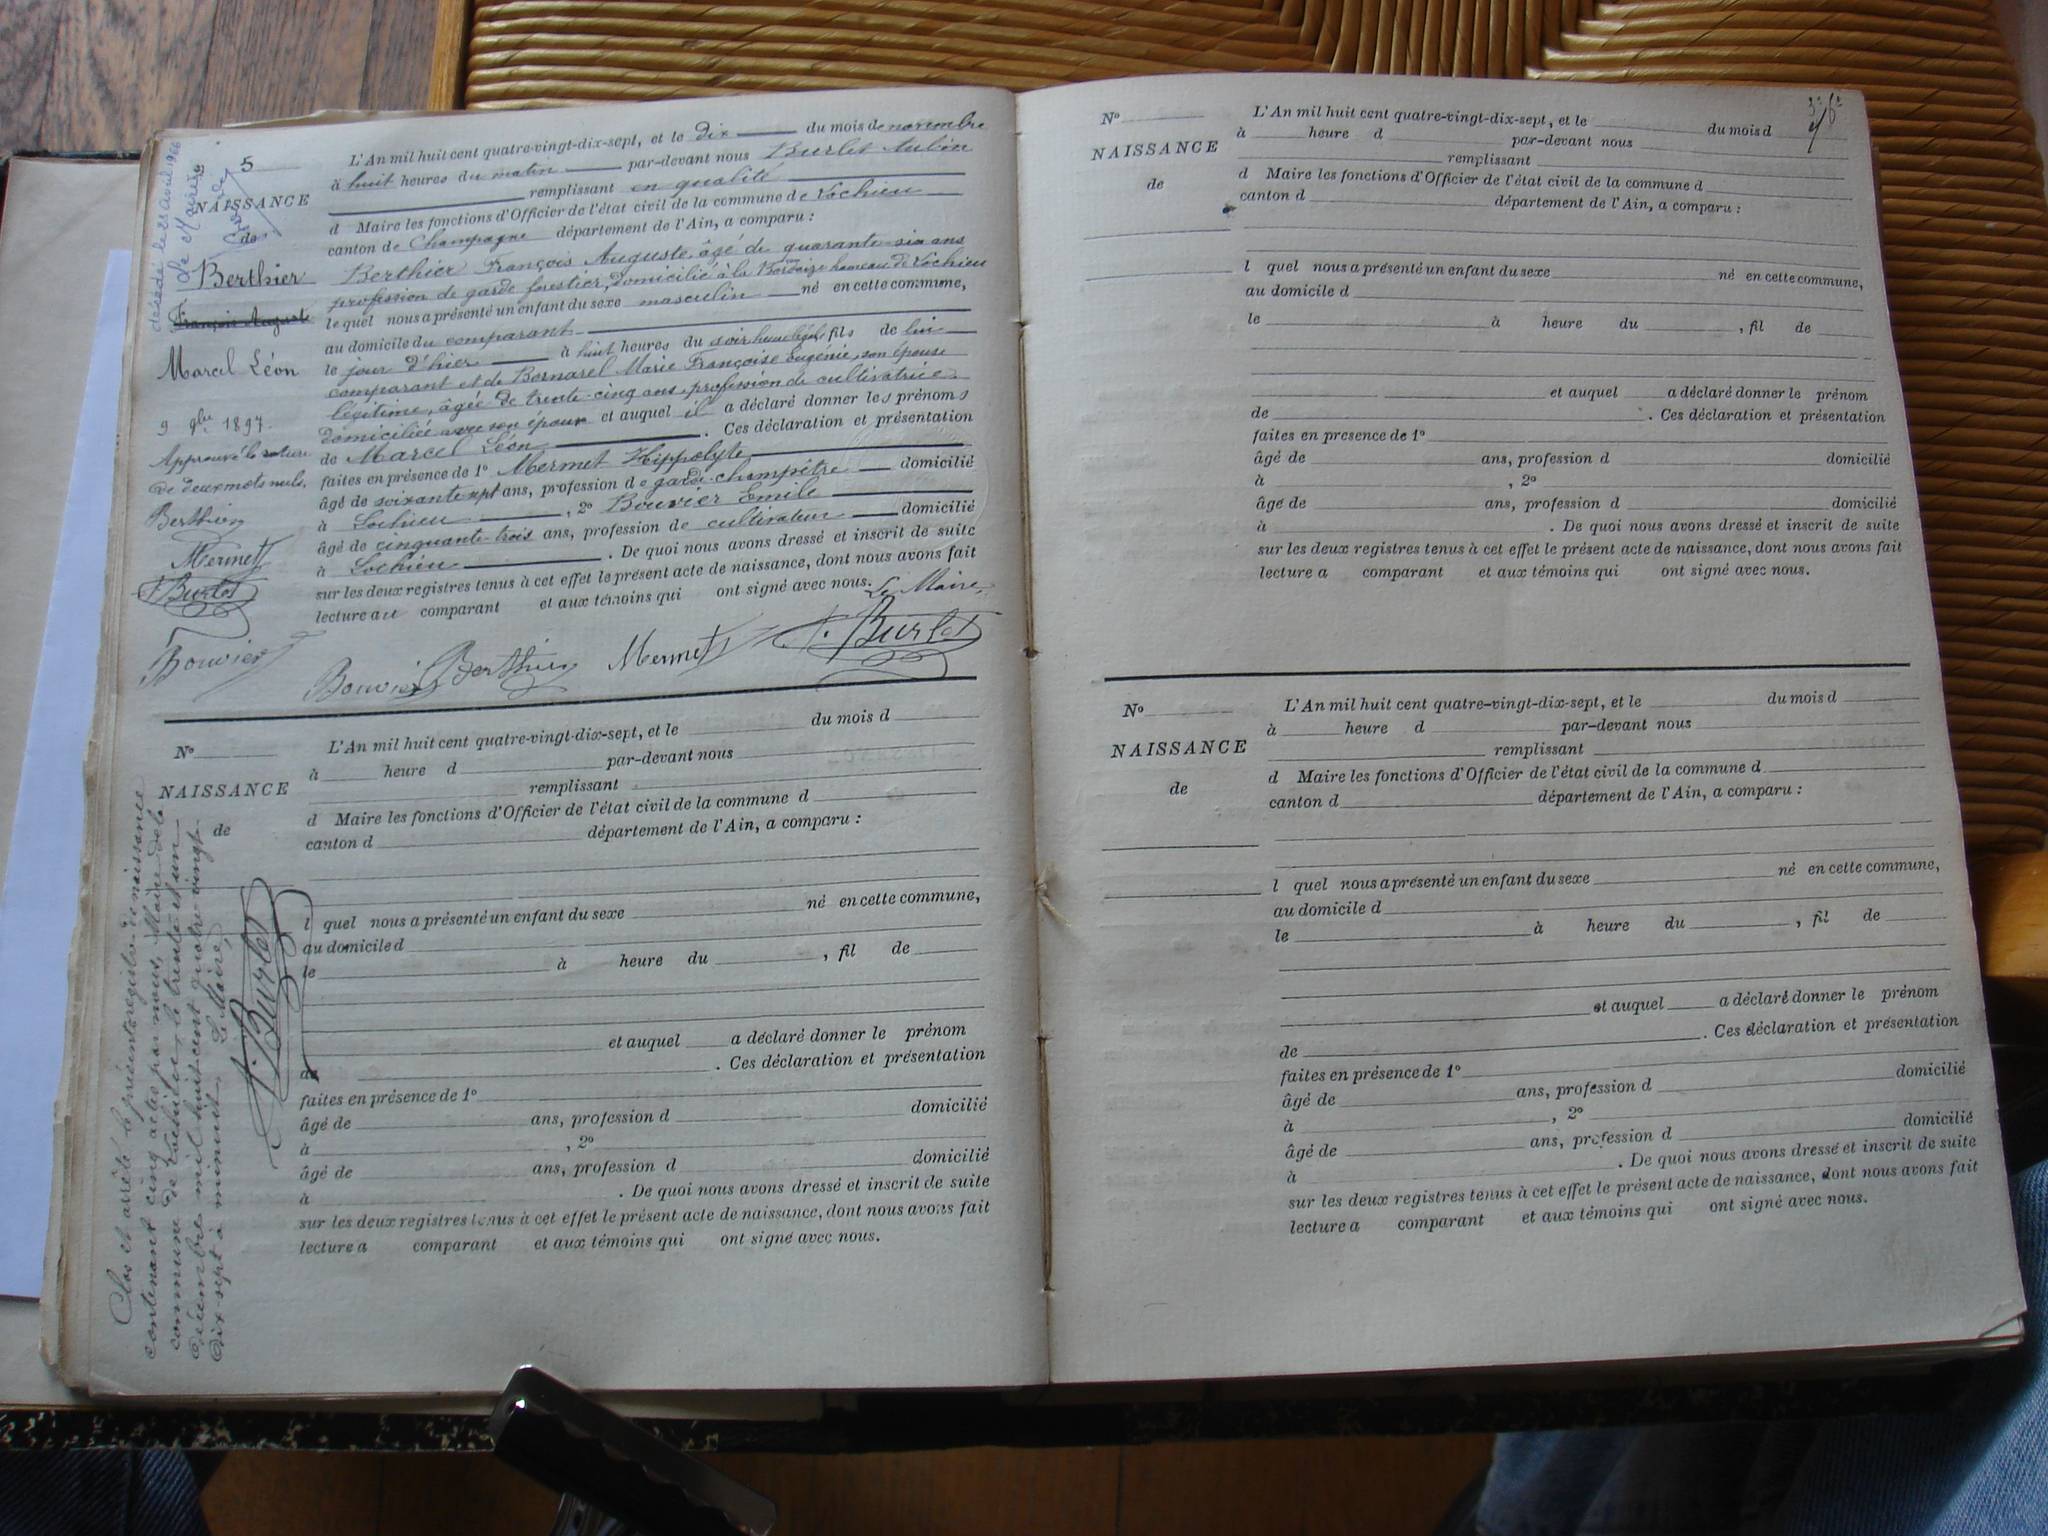 5
NAISSANCE
de
Berthier
François August
Marcel Léon
9 9bre 1897.
Approuvé la rature
de deux mots nuls.
Berthier
Mermet
A. Burlet
Bouvier
décédé le 28 avril 1966
L'An mil huit cent quatre-vingt-dix-sept, et le dix du mois de novembre
à huit heures du matin par-devant nous Burlet Aubin
remplissant en qualité
d Maire les fonctions d'Officier de l'état civil de la commune de Lochieu
canton de Champagne département de l'Ain, a comparu :
Berthier François Auguste, âgé de quarante-six ans
profession de garde forestier, domicilié à la hameau de Lochieu
lequel nous a présenté un enfant du sexe masculin né en cette commune,
au domicile du comparant
le jour d'hier à huit heures du soir heure légale fils de lui
comparant et de Bernarel Marie Françoise Eugénie, son épouse
légitime, âgée de trente-cinq ans, profession de cultivatrice
domiciliée avec son époux et auquel il a déclaré donner les prénoms
de Marcel Léon . Ces déclaration et présentation
faites en présence de 1° Mermet Hippolyte
âgé de soixante sept ans, profession de garde-champêtre domicilié
à Lochieu , 2° Bouvier Emile
âgé de cinquante-trois ans, profession de cultivateur domicilié
à Lochieu . De quoi nous avons dressé et inscrit de suite
sur les deux registres tenus à cet effet le présent acte de naissance, dont nous avons fait
lecture au comparant et aux témoins qui ont signé avec nous. Le Maire,
Bouvier Berthier Mermet A. Burlet
N°
NAISSANCE
de
L'An mil huit cent quatre-vingt-dix-sept, et le du mois d
à heure d par-devant nous
remplissant
d Maire les fonctions d'Officier de l'état civil de la commune d
canton d département de l'Ain, a comparu :
l quel nous a présenté un enfant du sexe né en cette commune,
au domicile d
le à heure du , fil de
et auquel a déclaré donner le prénom
de . Ces déclaration et présentation
faites en présence de 1°
âgé de ans, profession d domicilié
à , 2°
âgé de ans, profession d domicilié
à . De quoi nous avons dressé et inscrit de suite
sur les deux registres tenus à cet effet le présent acte de naissance, dont nous avons fait
lecture a comparant et aux témoins qui ont signé avec nous.
Clos et arrêté le présent registre de naissance
contenant cinq actes par nous, Maire de la
commune de Lochieu, le trente et un
décembre mil huit cent quatre-vingt-
dix-sept à minuit. Le Maire,
A. Burlet
N°
NAISSANCE
de
L'An mil huit cent quatre-vingt-dix-sept, et le du mois d
à heure d par-devant nous
remplissant
d Maire les fonctions d'Officier de l'état civil de la commune d
canton d département de l'Ain, a comparu :
l quel nous a présenté un enfant du sexe né en cette commune,
au domicile d
le à heure du , fil de
et auquel a déclaré donner le prénom
de . Ces déclaration et présentation
faites en presence de 1°
âgé de ans, profession d domicilié
à , 2°
âgé de ans, profession d domicilié
à . De quoi nous avons dressé et inscrit de suite
sur les deux registres tenus à cet effet le présent acte de naissance, dont nous avons fait
lecture a comparant et aux témoins qui ont signé avec nous.
N°
NAISSANCE
de
L'An mil huit cent quatre-vingt-dix-sept, et le du mois d
à heure d par-devant nous
remplissant
d Maire les fonctions d'Officier de l'état civil de la commune d
canton d département de l'Ain, a comparu :
l quel nous a présenté un enfant du sexe né en cette commune,
au domicile d
le à heure du , fil de
et auquel a déclaré donner le prénom
de . Ces déclaration et présentation
faites en présence de 1°
âgé de ans, profession d domicilié
à , 2°
âgé de ans, profession d domicilié
à . De quoi nous avons dressé et inscrit de suite
sur les deux registres tenus à cet effet le présent acte de naissance, dont nous avons fait
lecture a comparant et aux témoins qui ont signé avec nous.